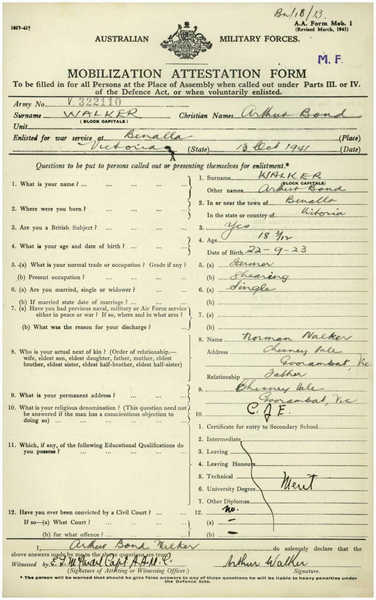 A.A. Form Mob. 1
(Revised March, 1941)
AUSTRALIAN MILITARY FORCES.
M.F.
MOBILIZATION ATTESTATION FORM
To be filled in for all Persons at the Place of Assembly when called out under Parts III. or IV.
of the Defence Act, or when voluntarily enlisted.
Army No. V 322110
Surname WALKER Christian Names Arthur Bond
(BLOCK CAPITALS)
Unit
Enlisted for war service at Benalla (Place)
Victoria (State) 13 Oct 1941 (Date)
Questions to be put to persons called out or presenting themselves for enlistment.*
1. What is your name? 1. Surname WALKER
(BLOCK CAPITALS)
Other names Arthur Bond
2. Where were you born? 2. In or near the town of Benalla
in the state or country of Victoria
3. Are you a British Subject? 3. Yes
4. What is your age and date of birth? 4. Age 18 1/12
Date of Birth 22-9-23
5. (a) What is your normal trade or occupation? Grade if any? 5. (a) Farmer
(b) Present occupation? (b) Shearing
6. (a) Are you married, single or widower? 6. (a) Single
(b) If married state date of marriage? (b)
7. (a) Have you had previous naval, military or Air Force service
either in peace or war? If so, where and in what arm? 7. (a)
(b) What was the reason for your discharge? (b)
8. Who is your actual next of kin? (Order of relationship,—
wife, eldest son, eldest daughter, father, mother, eldest
brother, eldest sister, eldest half-brother, eldest half-sister)
8. Name Norman Walker
Address Chesney Vale
Goorambat, Vic
Relationship Father
9. What is your permanent address? 9. Chesney Vale
Goorambat, Vic
10. What is your religious denomination? (This question need not
be answered if the man has a conscientious objection
to doing so) 10. C of E
11. Which, if any, of the following Educational Qualifications do
you possess?
1. Certificate for entry to Secondary School.
2. Intermediate
3. Leaving
4. Leaving Honours
5. Technical Merit
6. University Degree
7. Other Diplomas
12. Have you ever been convicted by a Civil Court? 12. no.
If so—(a) What Court? (a) –
(b) for what offence? (b) –
I, Arthur Bond Walker do solemnly declare that the
above answers made by me to the above questions are true.
Witnessed by Capt A.A.M.C. Arthur Walker
(Signature of Attesting or Witnessing Officer) Signature.
* The person will be warned that should he give false answers to any of these questions he will be liable to heavy penalties under
the Defence Act.